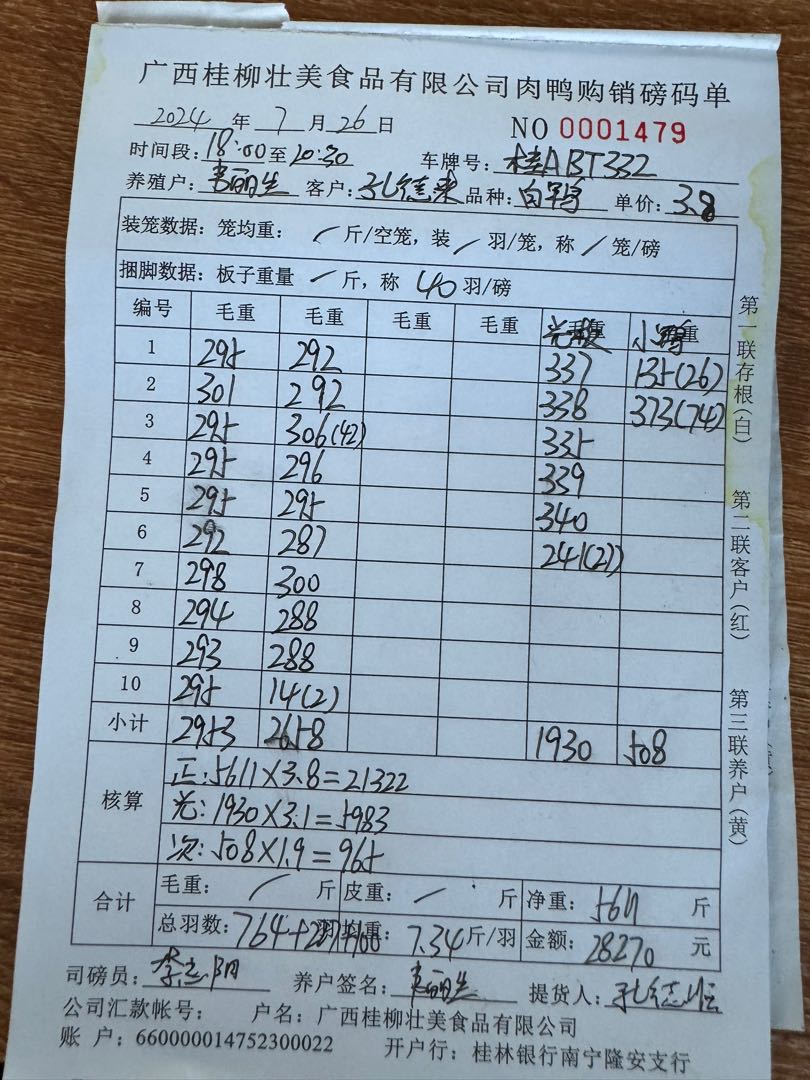 广西桂柳壮美食品有限公司肉鸭购销磅码单
2024 年 7 月 26 日 NO 0001479
时间段:18:00至20:30 车牌号:桂ABT332
养殖户:韦丽生 客户:孔德来 品种:白鸭 单价:3.8
装笼数据:笼均重: / 斤/空笼,装 / 羽/笼,称 / 笼/磅
捆脚数据:板子重量 / 斤,称 40 羽/磅
编号 毛重 毛重 毛重 毛重
1 295 292 337 135(26)
2 301 292 338 373(74)
3 295 306(42) 335
4 295 296 339
5 295 295 340
6 292 287 241(27)
7 298 300
8 294 288
9 293 288
10 295 14(2)
小计 2953 2658 1930 508
核算
正:5611×3.8=21322
光:1930×3.1=5983
次:508×1.9=965
合计
毛重: / 斤 皮重: / 斤 净重:5611 斤
总羽数:764+227+100 均重:7.34 斤/羽 金额:28270 元
司磅员:李志阳 养户签名:韦丽生 提货人:
公司汇款帐号: 户名:广西桂柳壮美食品有限公司
账 户:660000014752300022 开户行:桂林银行南宁隆安支行
第一联存根(白)
第二联客户(红)
第三联养户(黄)